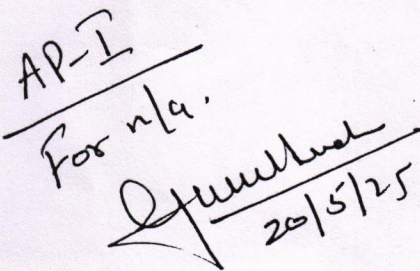 AP-I
For n/a.
20/5/25